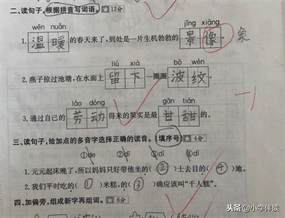 二、读句子,根据拼音写词语。12分
wēn nuǎn jǐng xiàng
1. 温暖 的春天来了,到处是一片生机勃勃的 景像 。 象
2. 燕子掠过池塘,在水面上 留下 一圈圈 波纹 。
láo dòng gān tián
3. 通过自己的 劳动 得来的果实是最 甘甜 的。
-1
三、读句子,给加点的多音字选择正确的读音。(填序号) 4分
1. 元元起床晚了,所以妈妈只好带他坐的(②)士去目的(④)地。
2. 我们平时吃的(①)米糕,的(③)确应该叫“千人糕”。
四、加偏旁,组成新字再组词。8分
头条 @小学伴读